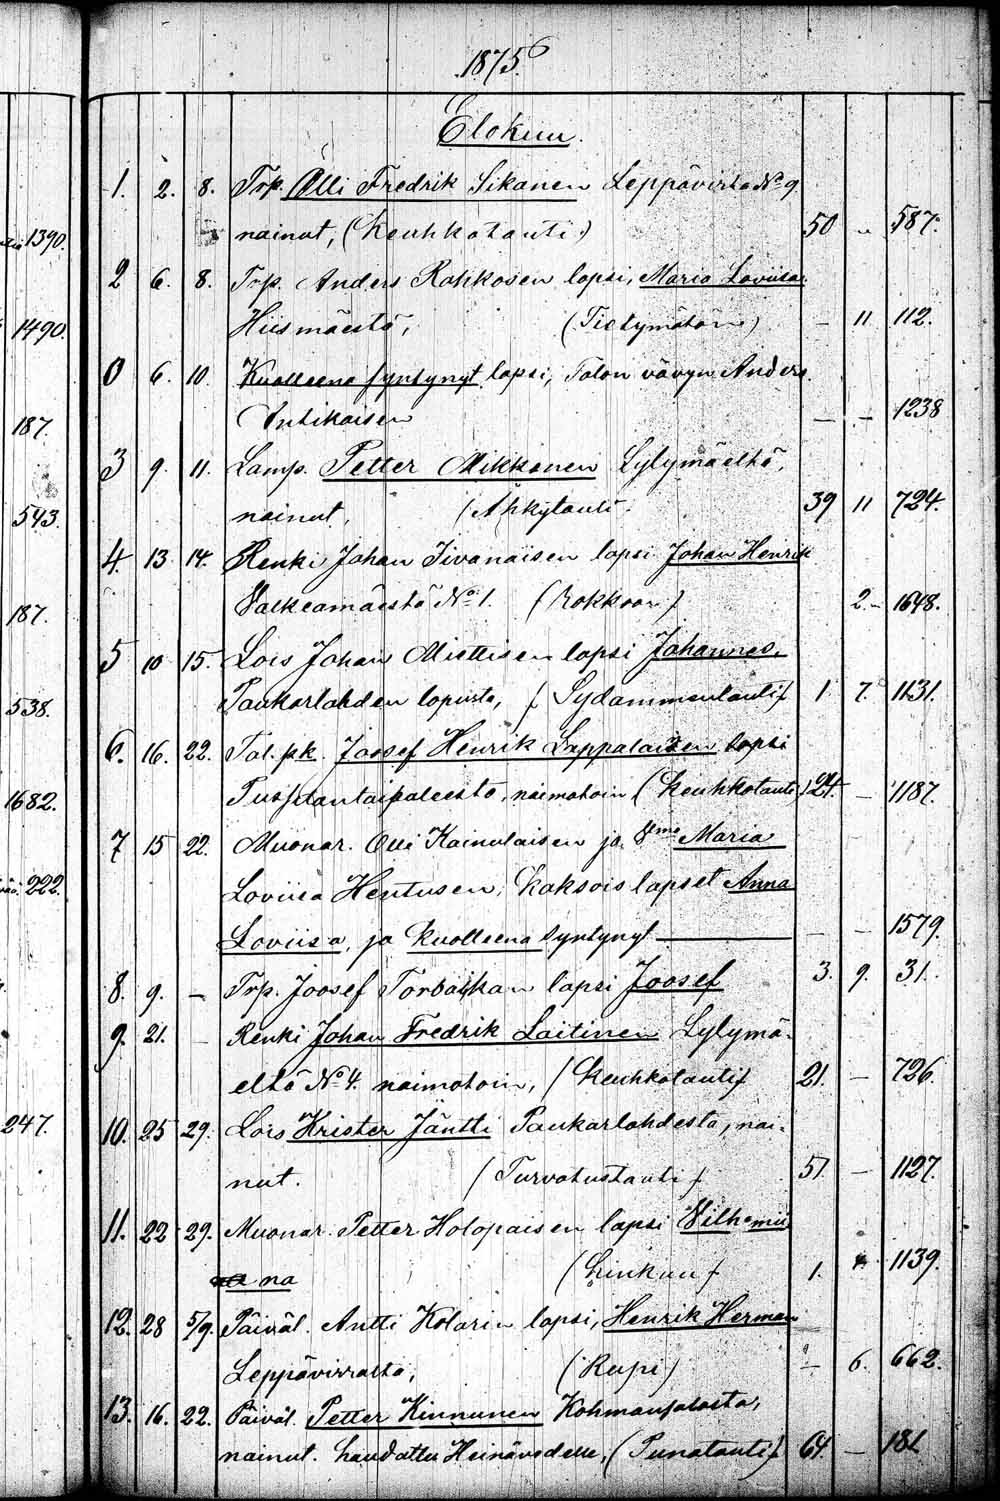 1875
Elokuu
1. 2. 8. Trp. Olli Fredrik Sikanen Leppävirta No 9.
nainut, (Keuhkotauti) 50 „ 587.
1390.
2 6. 8. Trp. Anders Rahkosen lapsi, Maria Loviisa
Hiismäestä, (Tietymätöin) – 11 112.
1490.
0 6. 10. Kuolleena syntynyt lapsi, Talon vävyn Anders
Antikaisen – – 1238
187.
3 9. 11. Lamp. Petter Mikkonen Lylymäeltä,
nainut, (Ähkytauti. 39 11 724.
543.
4. 13 14. Renki Johan Iivanaisen lapsi Johan Henrik
Valkeamäestä No 1. (Rokkoon) 2.– 1648.
187.
5 10 15. Lois Johan Miettisen lapsi Johannes,
Paukarlahden lopusta, (Sydammentauti) 1. 7. 1131.
538.
6. 16. 22. Tal. pk. Joosef Henrik Lappalaisen lapsi
naimatoin (Keuhkotauti) 24. – 1187.
1682.
7 15 22. Muonar. Olli Kainulaisen ja Vmo Maria
Loviisa Hentusen, Kaksois lapset Anna
222.
Loviisa, ja kuolleena syntynyt – – 1579.
8. 9. – Trp. Joosef lapsi Joosef 3. 9. 31.
9. 21. – Renki Johan Fredrik Laitinen Lylymä-
eltä No 4. naimatoin, (Keuhkotauti) 21. – 726.
10. 25 29. Lois Krister Jäntti Paukarlahdesta, nai-
nut. (Turvotustauti) 51 – 1127.
247.
11. 22 29. Muonar. Petter Holopaisen lapsi Vilhemii
na (Hinkuu) 1. 1139.
12. 28 5/9. Päiväl. Antti Kolarin lapsi, Henrik Herman
Leppävirralta, (Rupi) – 6. 662.
13. 16. 22. Päiväl. Petter Kinnunen
nainut. haudattu Heinävedelle, (Punatauti) 64. – 181